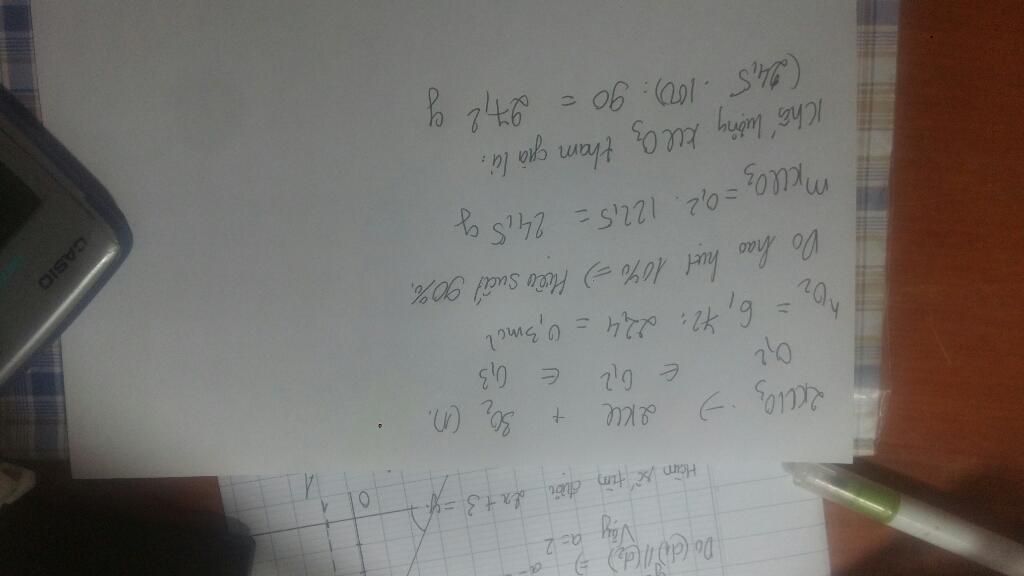 2KClO3 → 2KCl + 3O2 (1).
0,2 ← 0,2 ← 0,3
nO2 = 6,72 : 22,4 = 0,3 mol
Do hao hụt 10% => Hiệu suất 90%.
mKClO3 = 0,2 . 122,5 = 24,5 g
Khối lượng KClO3 tham gia là:
(24,5 . 100) : 90 = 27,2 g
CASIO
Do (d1) // (d2) => a =
Vậy a = 2
Hàm số tìm được: 2x + 3 = y
0 1